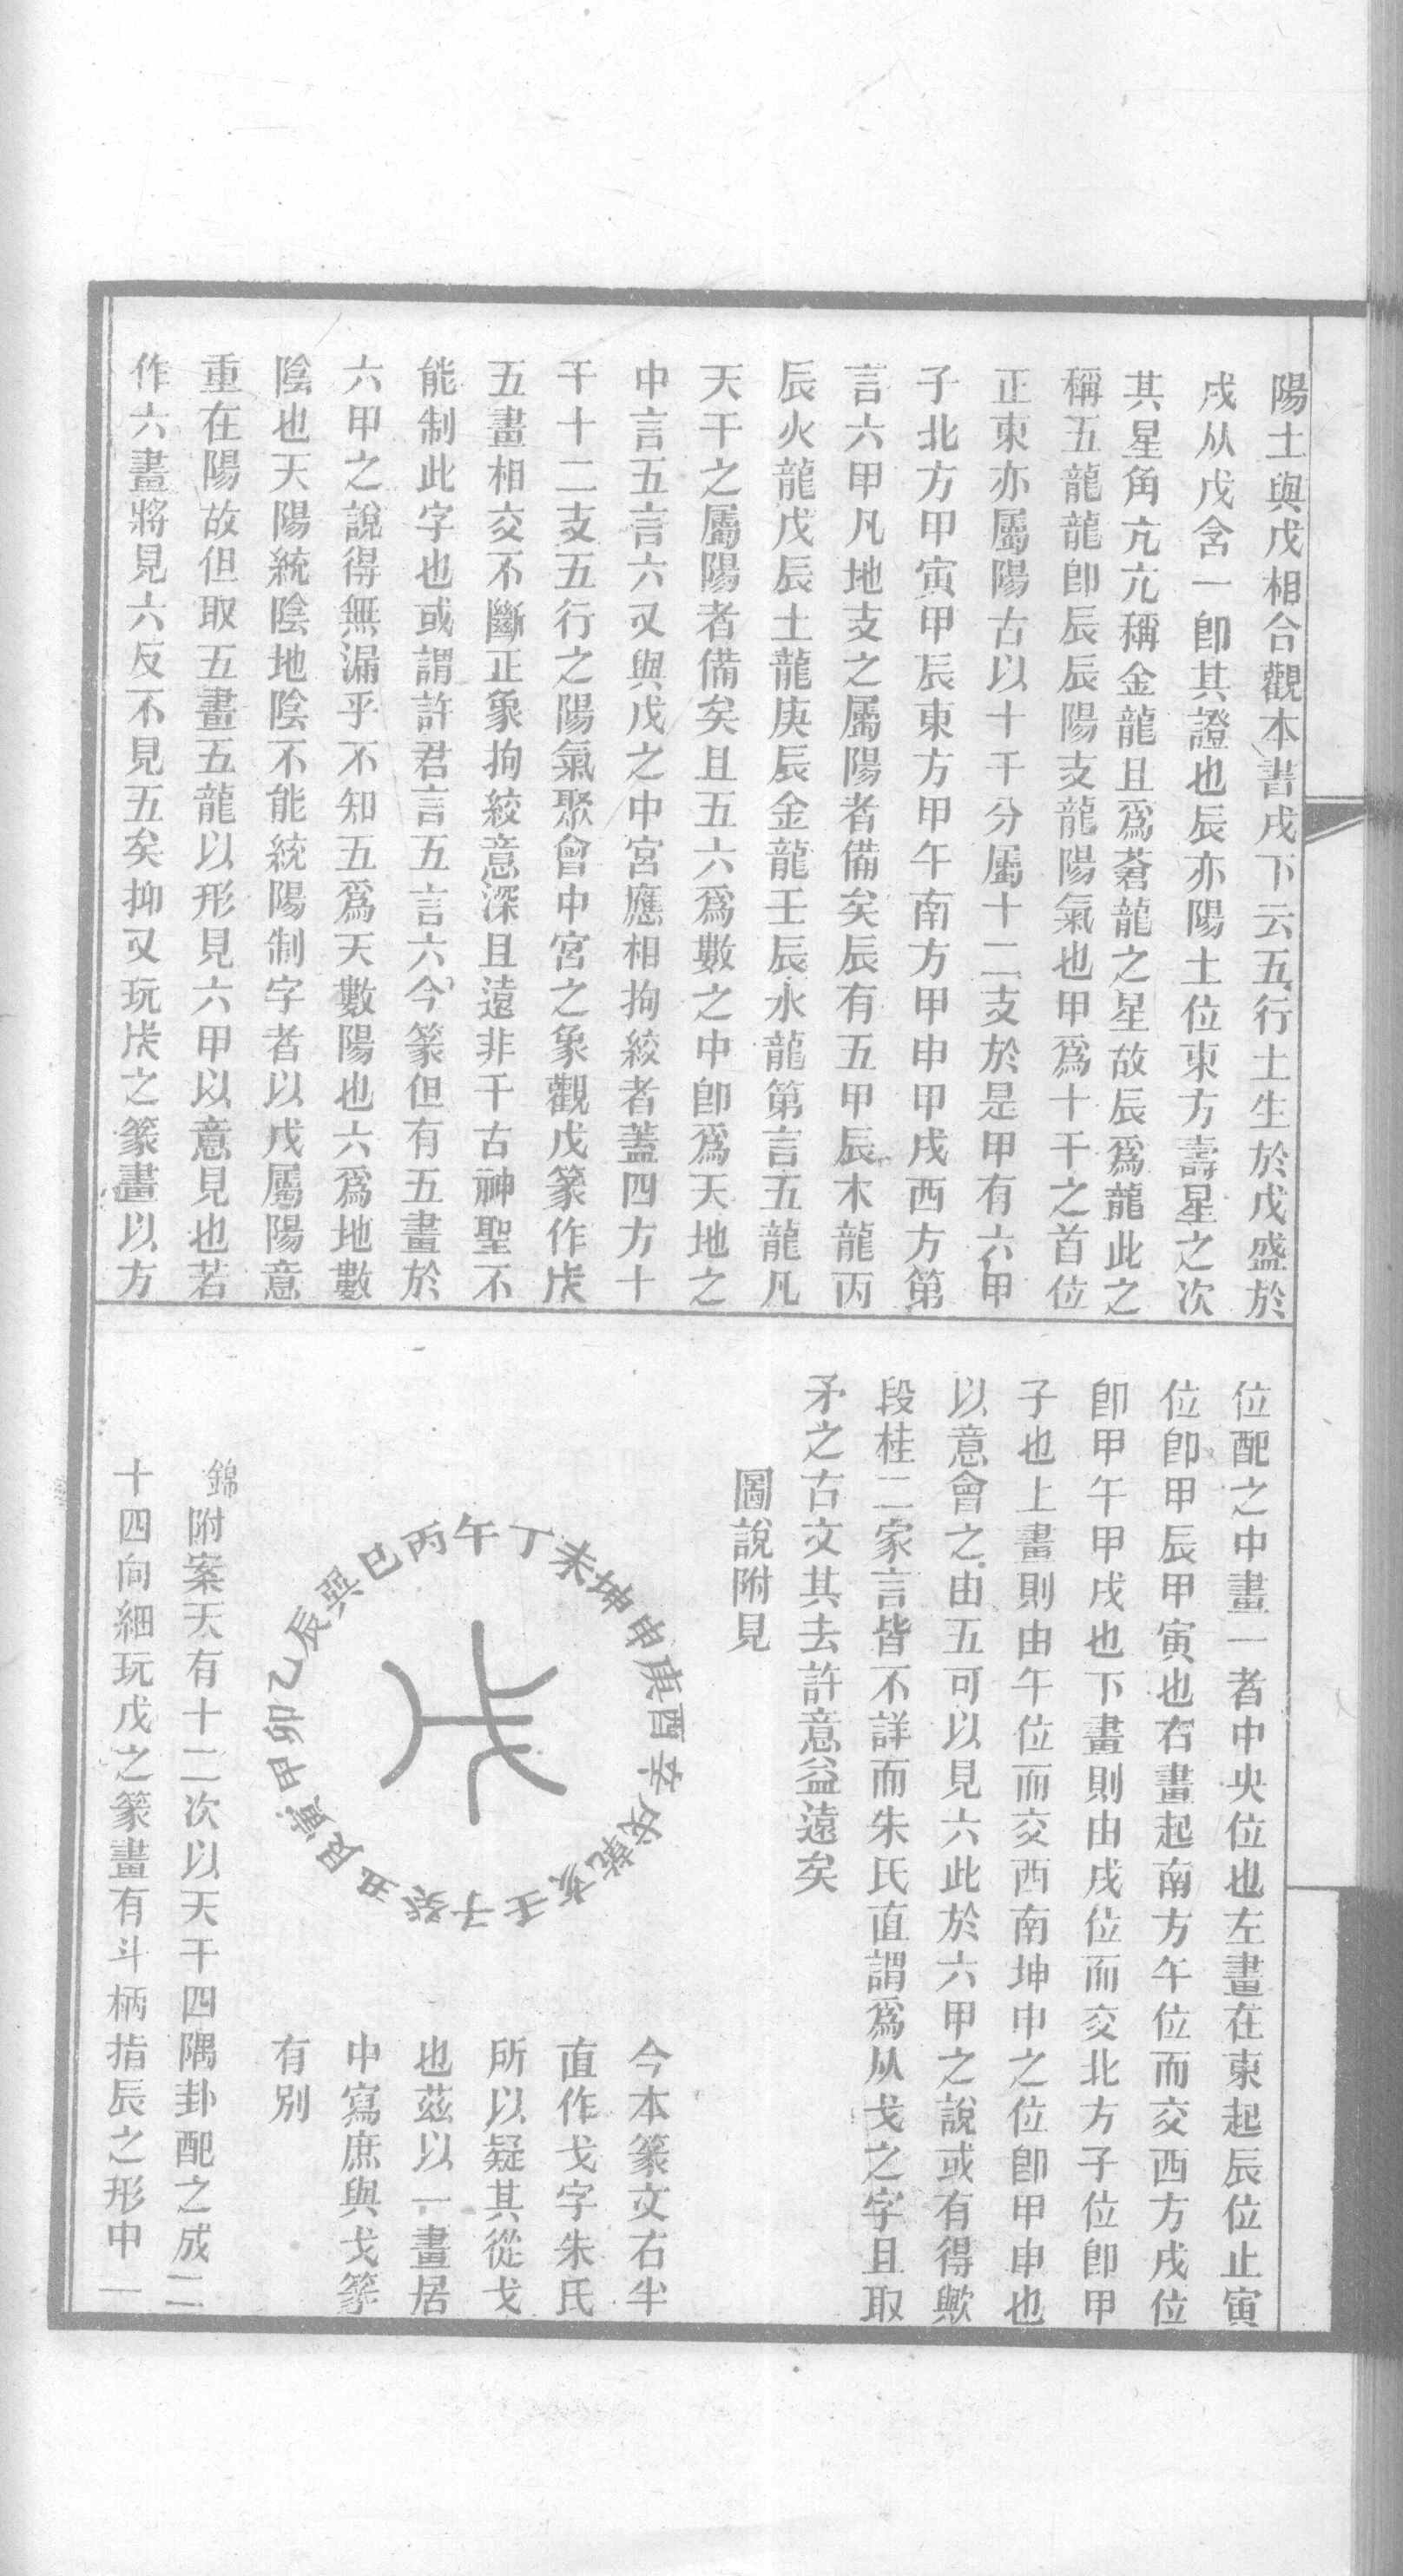 陽土與戊相合觀本書戌下云五行土生於戊盛於
戌从戊含一卽其證也辰亦陽土位東方壽星之次
其星角亢亢稱金龍且爲蒼龍之星故辰爲龍此之
稱五龍龍卽辰辰陽支龍陽氣也甲爲十干之首位
正東亦屬陽古以十干分屬十二支於是甲有六甲
子北方甲寅甲辰東方甲午南方甲申甲戌西方第
言六甲凡地支之屬陽者備矣辰有五甲辰木龍丙
辰火龍戊辰土龍庚辰金龍壬辰水龍第言五龍凡
天干之屬陽者備矣且五六爲數之中卽爲天地之
中言五言六又與戊之中宮應相拘絞者蓋四方十
干十二支五行之陽氣聚會中宮之象觀戊篆作戊
五畫相交不斷正象拘絞意深且遠非千古神聖不
能制此字也或謂許君言五言六今篆但有五畫於
六甲之說得無漏乎不知五爲天數陽也六爲地數
陰也天陽統陰地陰不能統陽制字者以戊屬陽意
重在陽故但取五畫五龍以形見六甲以意見也若
作六畫將見六反不見五矣抑又玩戊之篆畫以方
位配之中畫一者中央位也左畫在東起辰位止寅
位卽甲辰甲寅也右畫起南方午位而交西方戌位
卽甲午甲戌也下畫則由戌位而交北方子位卽甲
子也上畫則由午位而交西南坤申之位卽甲申也
以意會之由五可以見六此於六甲之說或有得歟
段桂二家言皆不詳而朱氏直謂爲从戈之字且取
矛之古文其去許意益遠矣
圖說附見
午丁未坤申庚酉辛戌乾亥壬子癸丑艮寅甲卯乙辰巽巳丙
今本篆文右半
直作戈字朱氏
所以疑其從戈
也茲以一畫居
中寫庶與戈篆
有別
錦附案天有十二次以天干四隅卦配之成二
十四向細玩戊之篆畫有斗柄指辰之形中一